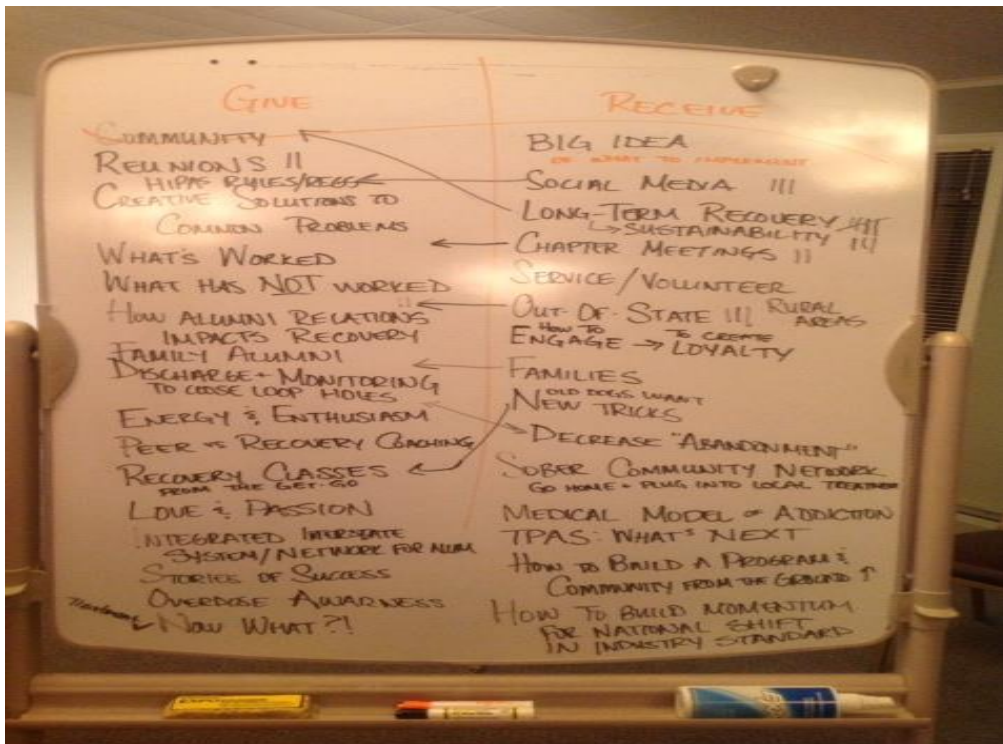 GIVE
COMMUNITY
REUNIONS II
HIPAA RULES/REGS
CREATIVE SOLUTIONS TO
COMMON PROBLEMS
WHAT'S WORKED
WHAT HAS NOT WORKED
HOW ALUMNI RELATIONS II
IMPACTS RECOVERY
FAMILY ALUMNI
DISCHARGE + MONITORING
TO CLOSE LOOP HOLES
ENERGY & ENTHUSIASM
PEER VS RECOVERY COACHING
RECOVERY CLASSES
FROM THE GET-GO
LOVE & PASSION
INTEGRATED INTERSTATE
SYSTEM/NETWORK FOR ALUM
STORIES OF SUCCESS
OVERDOSE AWARNESS
NOW WHAT?!
RECEIVE
BIG IDEA
OF WHAT TO IMPLEMENT
SOCIAL MEDIA III
LONG-TERM RECOVERY
SUSTAINABILITY
CHAPTER MEETINGS II
SERVICE/VOLUNTEER
OUT-OF-STATE III RURAL AREAS
HOW TO ENGAGE → TO CREATE LOYALTY
FAMILIES
OLD DOGS WANT
NEW TRICKS
DECREASE "ABANDONMENT"
SOBER COMMUNITY NETWORK
GO HOME + PLUG INTO LOCAL TREATMENT
MEDICAL MODEL OF ADDICTION
TPAS: WHAT'S NEXT
HOW TO BUILD A PROGRAM &
COMMUNITY FROM THE GROUND ↑
HOW TO BUILD MOMENTUM
FOR NATIONAL SHIFT
IN INDUSTRY STANDARD
EXPO